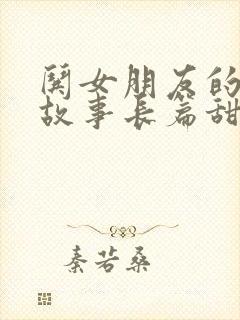 閧女朋友的
故事长篇甜
秦若桑